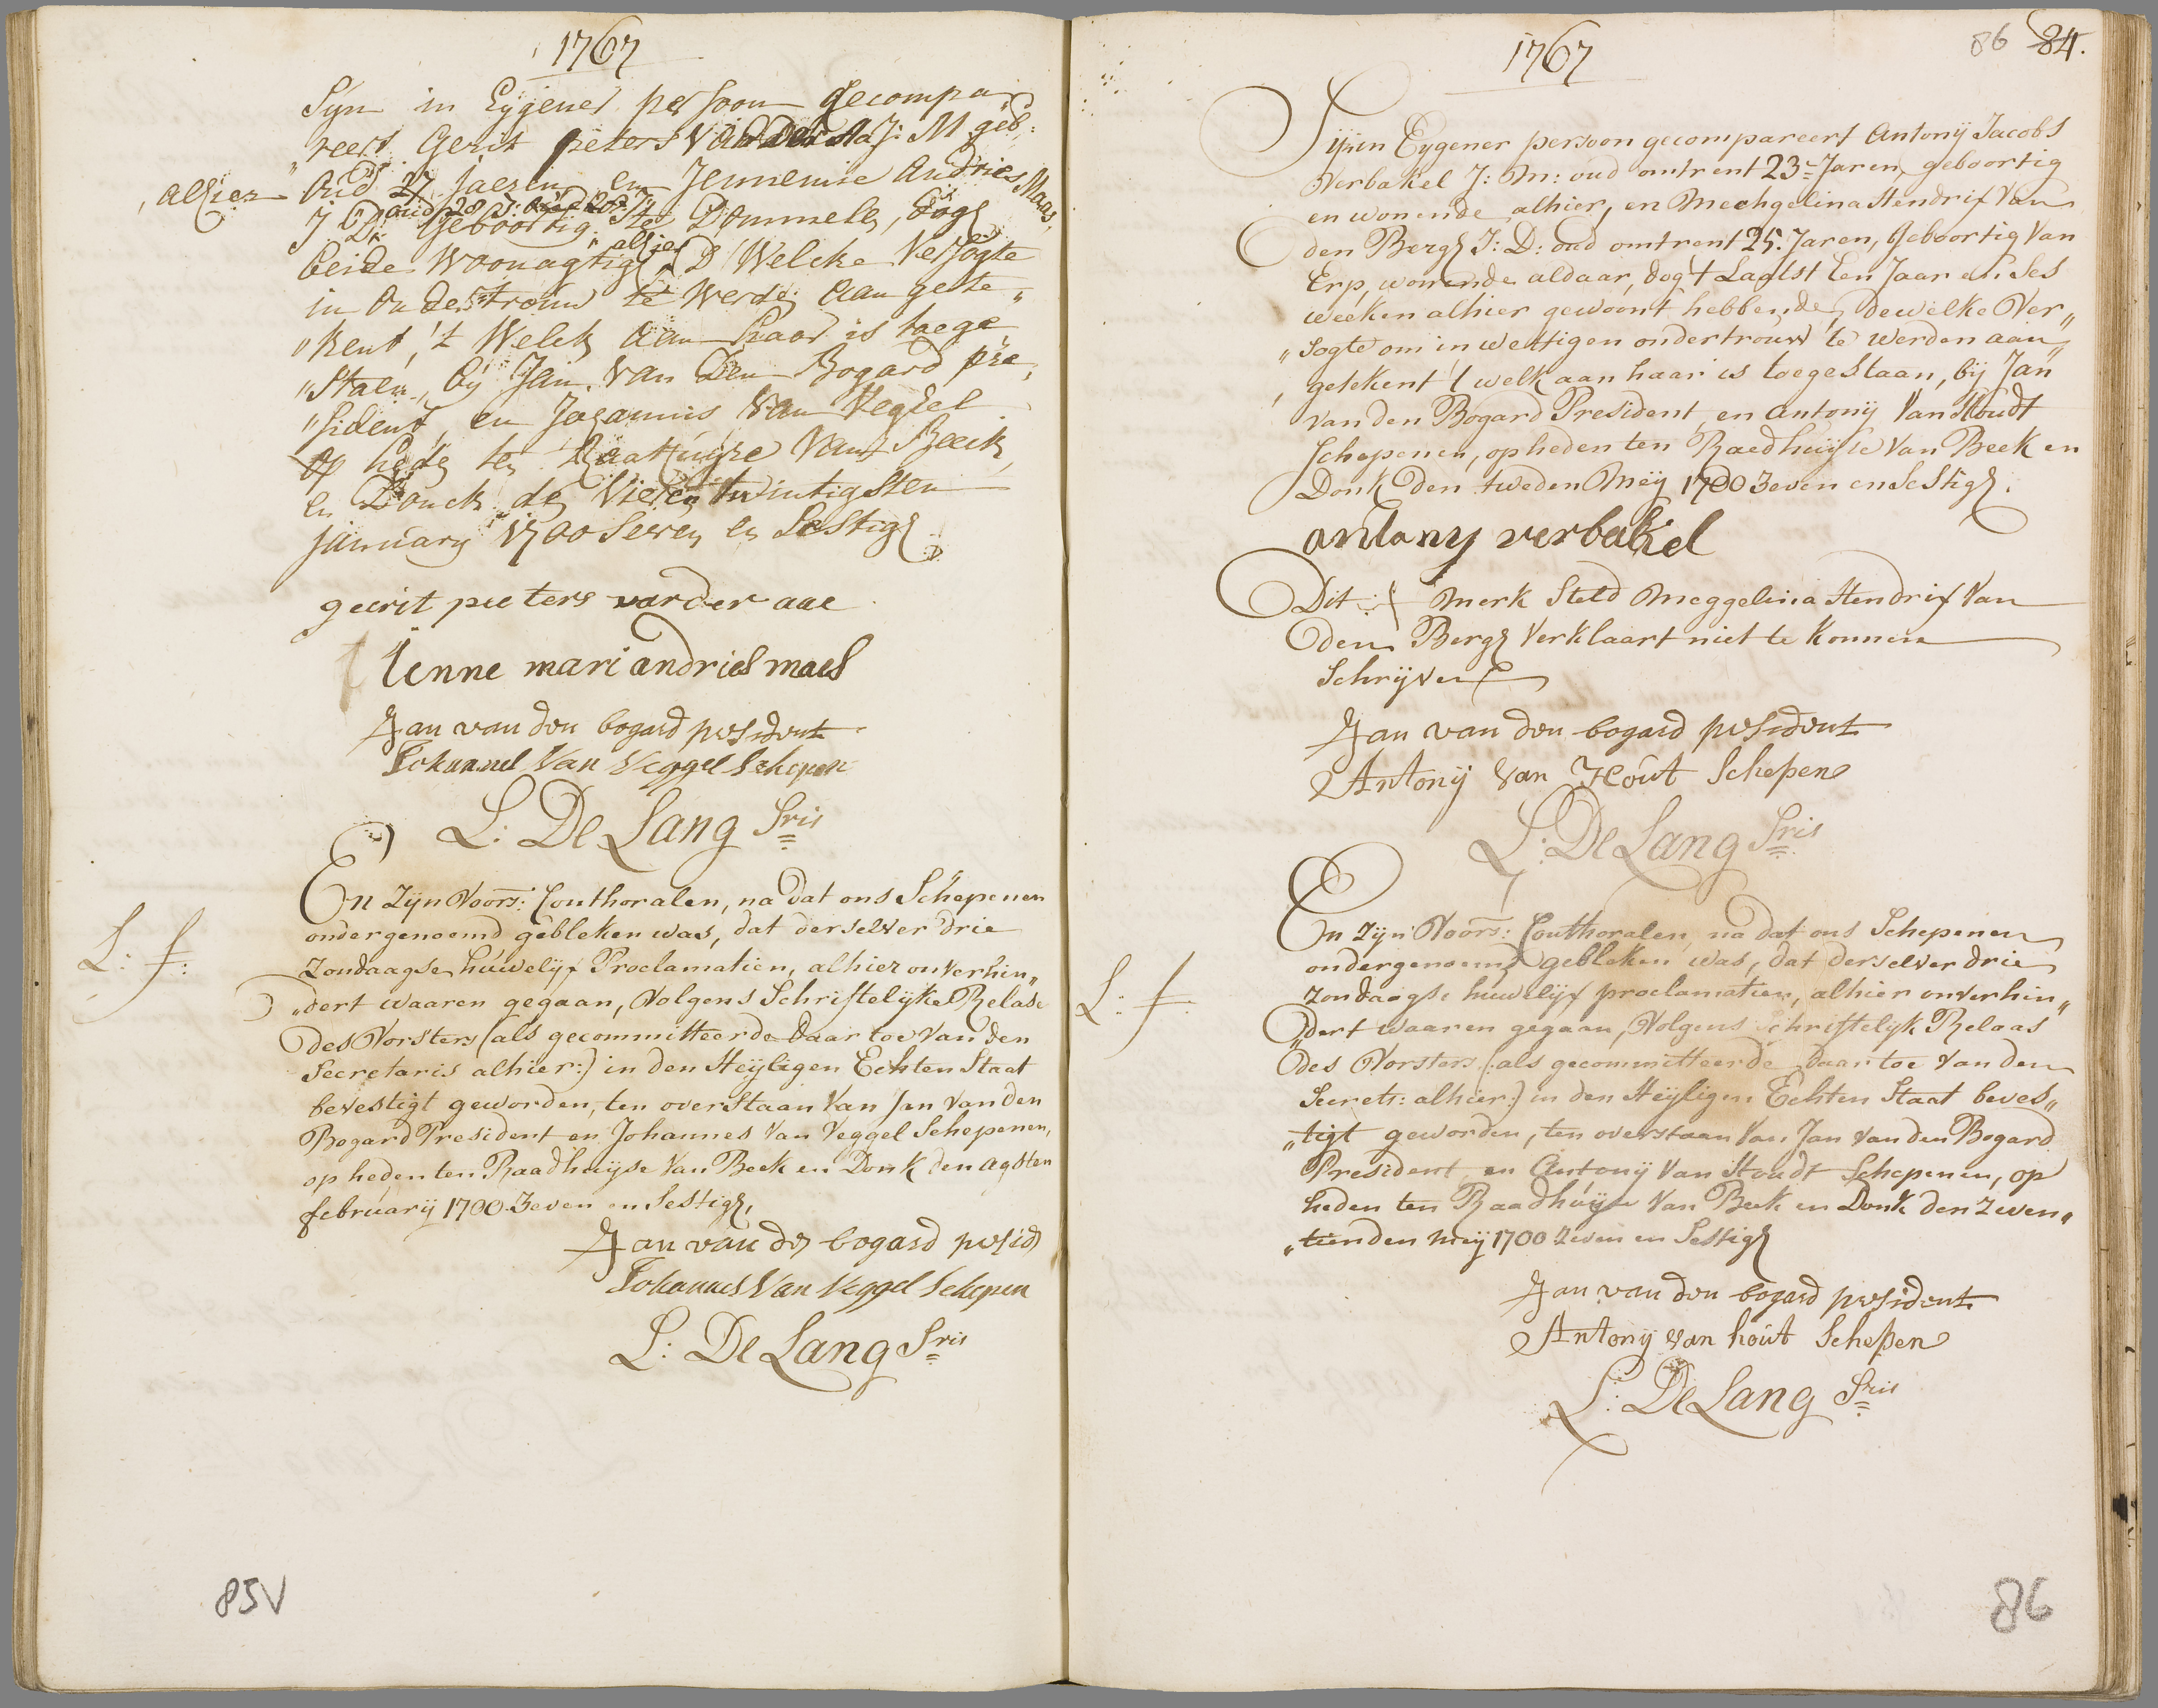 1767
Sijn in Eijgener persoon gecompa
reert Gerit peeters van der Aa J: M geb:
alhier oud 27 jaeren en Jennemie Andries Maas,
J: D: oud 28 J:
geboortig te Dommelen, dogh
beide woonagtigh alhier D Welcke Versogte
in Ondertrouw te werden aan gete„
„kent, 't Welck aan haar is toege
„staen, bij Jan van den Bogard pre„
„sident, en Johannis van Vegchel
op heden ten Raathuijse Vant Beeck
en Donck den Vier en twintigsten
januarij 1700 Seven en Sestigh
geerit peeters vander aae
Jenne mari andries maes
Jan van den bogard president
Johannes Van Veggel Schepen
L: De Lang Sris
L: f:
En Zijn Voors: Conthoralen, na dat ons Schepenen
ondergenoemd gebleken was, dat derselver drie
Zondaagse huwelijx Proclamatien, alhier onverhin„
„dert waaren gegaan, Volgens Schriftelijke Relase
des Vorsters (als gecommitteerde daar toe van den
Secretaris alhier:) in den Heijligen Echten Staat
bevestigt geworden, ten overstaan Van Jan van den
Bogard President en Johannes Van Veggel Schepenen,
op heden ten Raadhuijse Van Beek en Donk den agsten
februarij 1700 Zeven en Sestigh,
Jan van den bogard presid
Johannes Van Veggel Schepen
L: De Lang Sris
85V
1767
86 84.
Sijn in Eygener persoon gecompareert Antonij Jacobs
Verbakel J: M: oud omtrent 23 Jaren, geboortig
en wonende alhier, en Mechgelina Hendrix Van
den Bergh J: D: oud omtrent 25 Jaren, Geboortig Van
Erp, wonende aldaar, dog 't Laatst Een Jaar en Ses
weeken alhier gewoont hebbende, dewelke Ver„
„sogte om in wettigen ondertrouw te werden aan„
getekent 't welk aan haar is toegestaan, bij Jan
van den Bogard President, en Antonij Van Houdt
Schepenen, op heden ten Raedhuijse Van Beek en
Donk den tweden Meij 1700 Zeven en Sestigh.
antony verbakel
Dit merk Steld Meggelina Hendrix Van
den Bergh Verklaart niet te konnen
Schrijven
Jan van den bogard president
Antonij van Hout Schepen
L: De Lang Sris
L: f:
En Zijn Voors: Conthoralen, na dat ons Schepenen
ondergenoemd gebleken was, dat derselver drie
Zondaagse huwelijx proclamatien, alhier onverhin„
„dert waaren gegaan, Volgens Schriftelijk Relaas
des Vorsters (als gecommitteerde daar toe van den
Secrets: alhier:) in den Heijligen Echten Staat beves„
„tigt geworden, ten overstaan Van Jan van den Bogard
President en Antonij Van Houdt Schepenen, op
heden ten Raadhuijse Van Beek en Donk den Zeven„
„tienden Meij 1700 Zeven en Sestigh
Jan van den bogard president
Antonij van hout Schepen
L: De Lang Sris
86